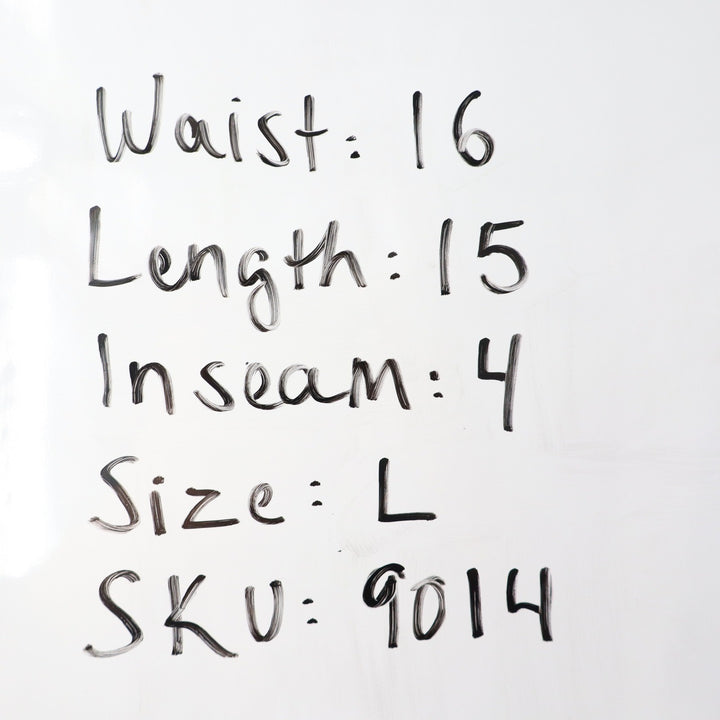 Waist: 16
Length: 15
Inseam: 4
Size: L
SKU: 9014